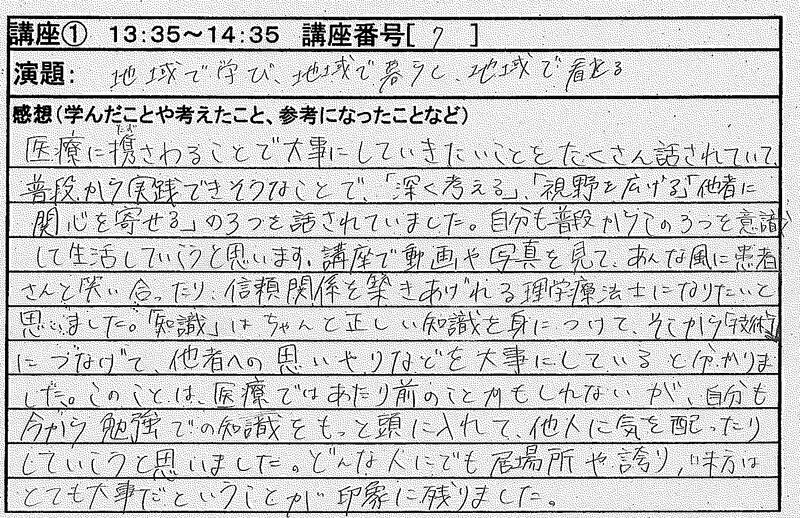 講座① 13:35～14:35 講座番号[ 7 ]
演題： 地域で学び、地域で暮らし、地域で看とる
感想（学んだことや考えたこと、参考になったことなど）
医療に携さわることで大事にしていきたいことをたくさん話されていて、
普段から実践できそうなことで、「深く考える」、「視野を広げる」「他者に
関心を寄せる」の3つを話されていました。自分も普段からこの3つを意識
して生活していこうと思います。講座で動画や写真を見て、あんな風に患者
さんと笑い合ったり、信頼関係を築きあげれる理学療法士になりたいと
思いました。「知識」はちゃんと正しい知識を身につけて、そこから「技術」
につなげて、他者への思いやりなどを大事にしていると分かりま
した。このことは、医療ではあたり前のことかもしれないが、自分も
今から勉強での知識をもっと頭に入れて、他人に気を配ったり
していこうと思いました。どんな人にでも居場所や誇り、味方は
とても大事だということが印象に残りました。